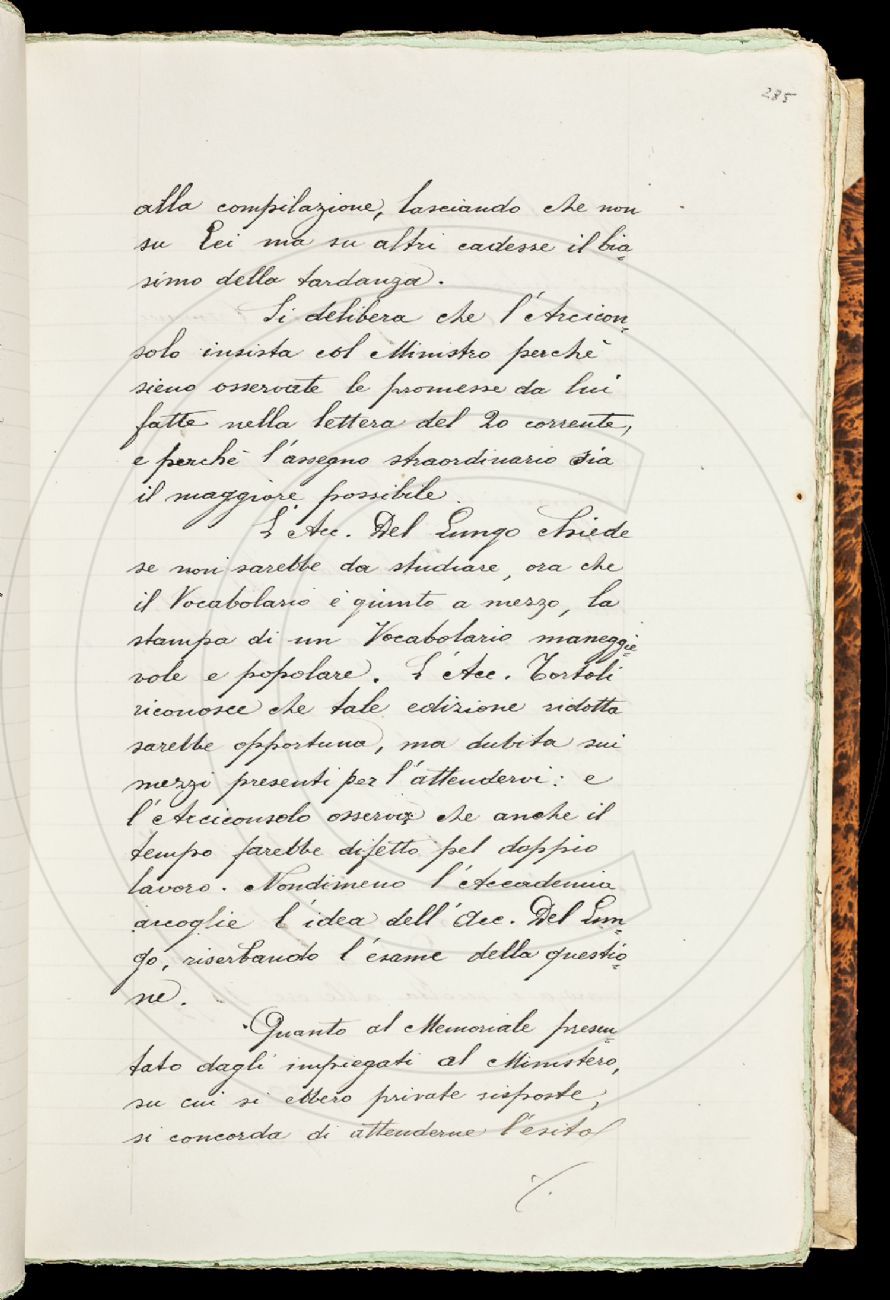 285
alla compilazione, lasciando che non
su Lei ma su altri cadesse il bia=
simo della tardanza.
Si delibera che l'Arcicon=
solo insista col Ministro perchè
sieno osservate le promesse da lui
fatte nella lettera del 20 corrente,
e perchè l'assegno straordinario sia
il maggiore possibile.
L'Acc. Del Lungo chiede
se non sarebbe da studiare, ora che
il Vocabolario è giunto a mezzo, la
stampa di un Vocabolario maneggie=
vole e popolare. L'Acc. Tortoli
riconosce che tale edizione ridotta
sarebbe opportuna, ma dubita sui
mezzi presenti per l'attendervi: e
l'Arciconsolo osserva che anche il
tempo farebbe difetto pel doppio
lavoro. Nondimeno l'Accademia
accoglie l'idea dell'Acc. Del Lun=
go, riserbando l'esame della questio=
ne.
Quanto al Memoriale presen=
tato dagli impiegati al Ministero,
su cui si ebbero private risposte,
si concorda di attenderne l'esito
./.